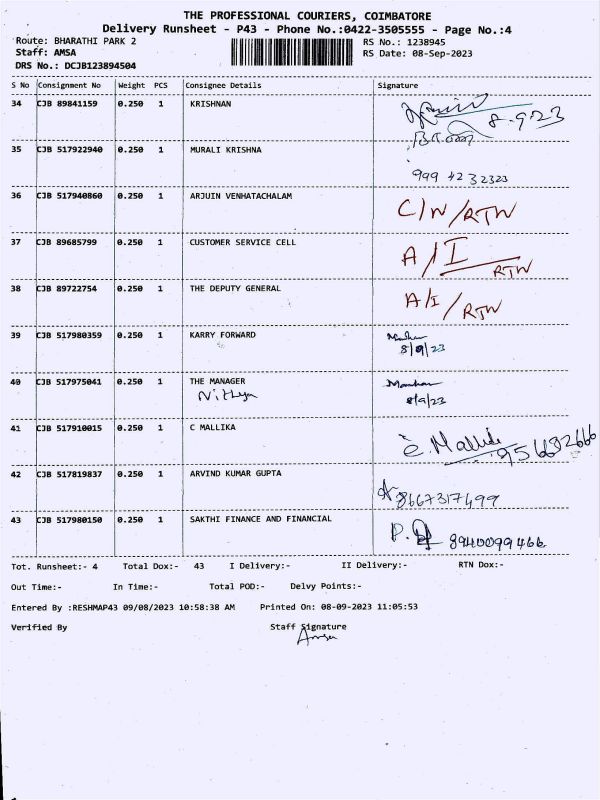 THE PROFESSIONAL COURIERS, COIMBATORE
Delivery Runsheet - P43 - Phone No.:0422-3505555 - Page No.:4
Route: BHARATHI PARK 2 RS No.: 1238945
Staff: AMSA RS Date: 08-Sep-2023
DRS No.: DCJB123894504
S No Consignment No Weight PCS Consignee Details Signature
34 CJB 89841159 0.250 1 KRISHNAN
8-9-23
35 CJB 517922940 0.250 1 MURALI KRISHNA
999 42 32323
36 CJB 517940860 0.250 1 ARJUIN VENHATACHALAM
C/N/RTN
37 CJB 89685799 0.250 1 CUSTOMER SERVICE CELL
A/I RTN
38 CJB 89722754 0.250 1 THE DEPUTY GENERAL
A/I/RTN
39 CJB 517980359 0.250 1 KARRY FORWARD
8/9/23
40 CJB 517975041 0.250 1 THE MANAGER Manohar
Nithya 8/9/23
41 CJB 517910015 0.250 1 C MALLIKA
C. Mallika
42 CJB 517819837 0.250 1 ARVIND KUMAR GUPTA
8667317499
43 CJB 517980150 0.250 1 SAKTHI FINANCE AND FINANCIAL
8940099466
Tot. Runsheet:- 4 Total Dox:- 43 I Delivery:- II Delivery:- RTN Dox:-
Out Time:- In Time:- Total POD:- Delvy Points:-
Entered By :RESHMAP43 09/08/2023 10:58:38 AM Printed On: 08-09-2023 11:05:53
Verified By Staff Signature
Amsa